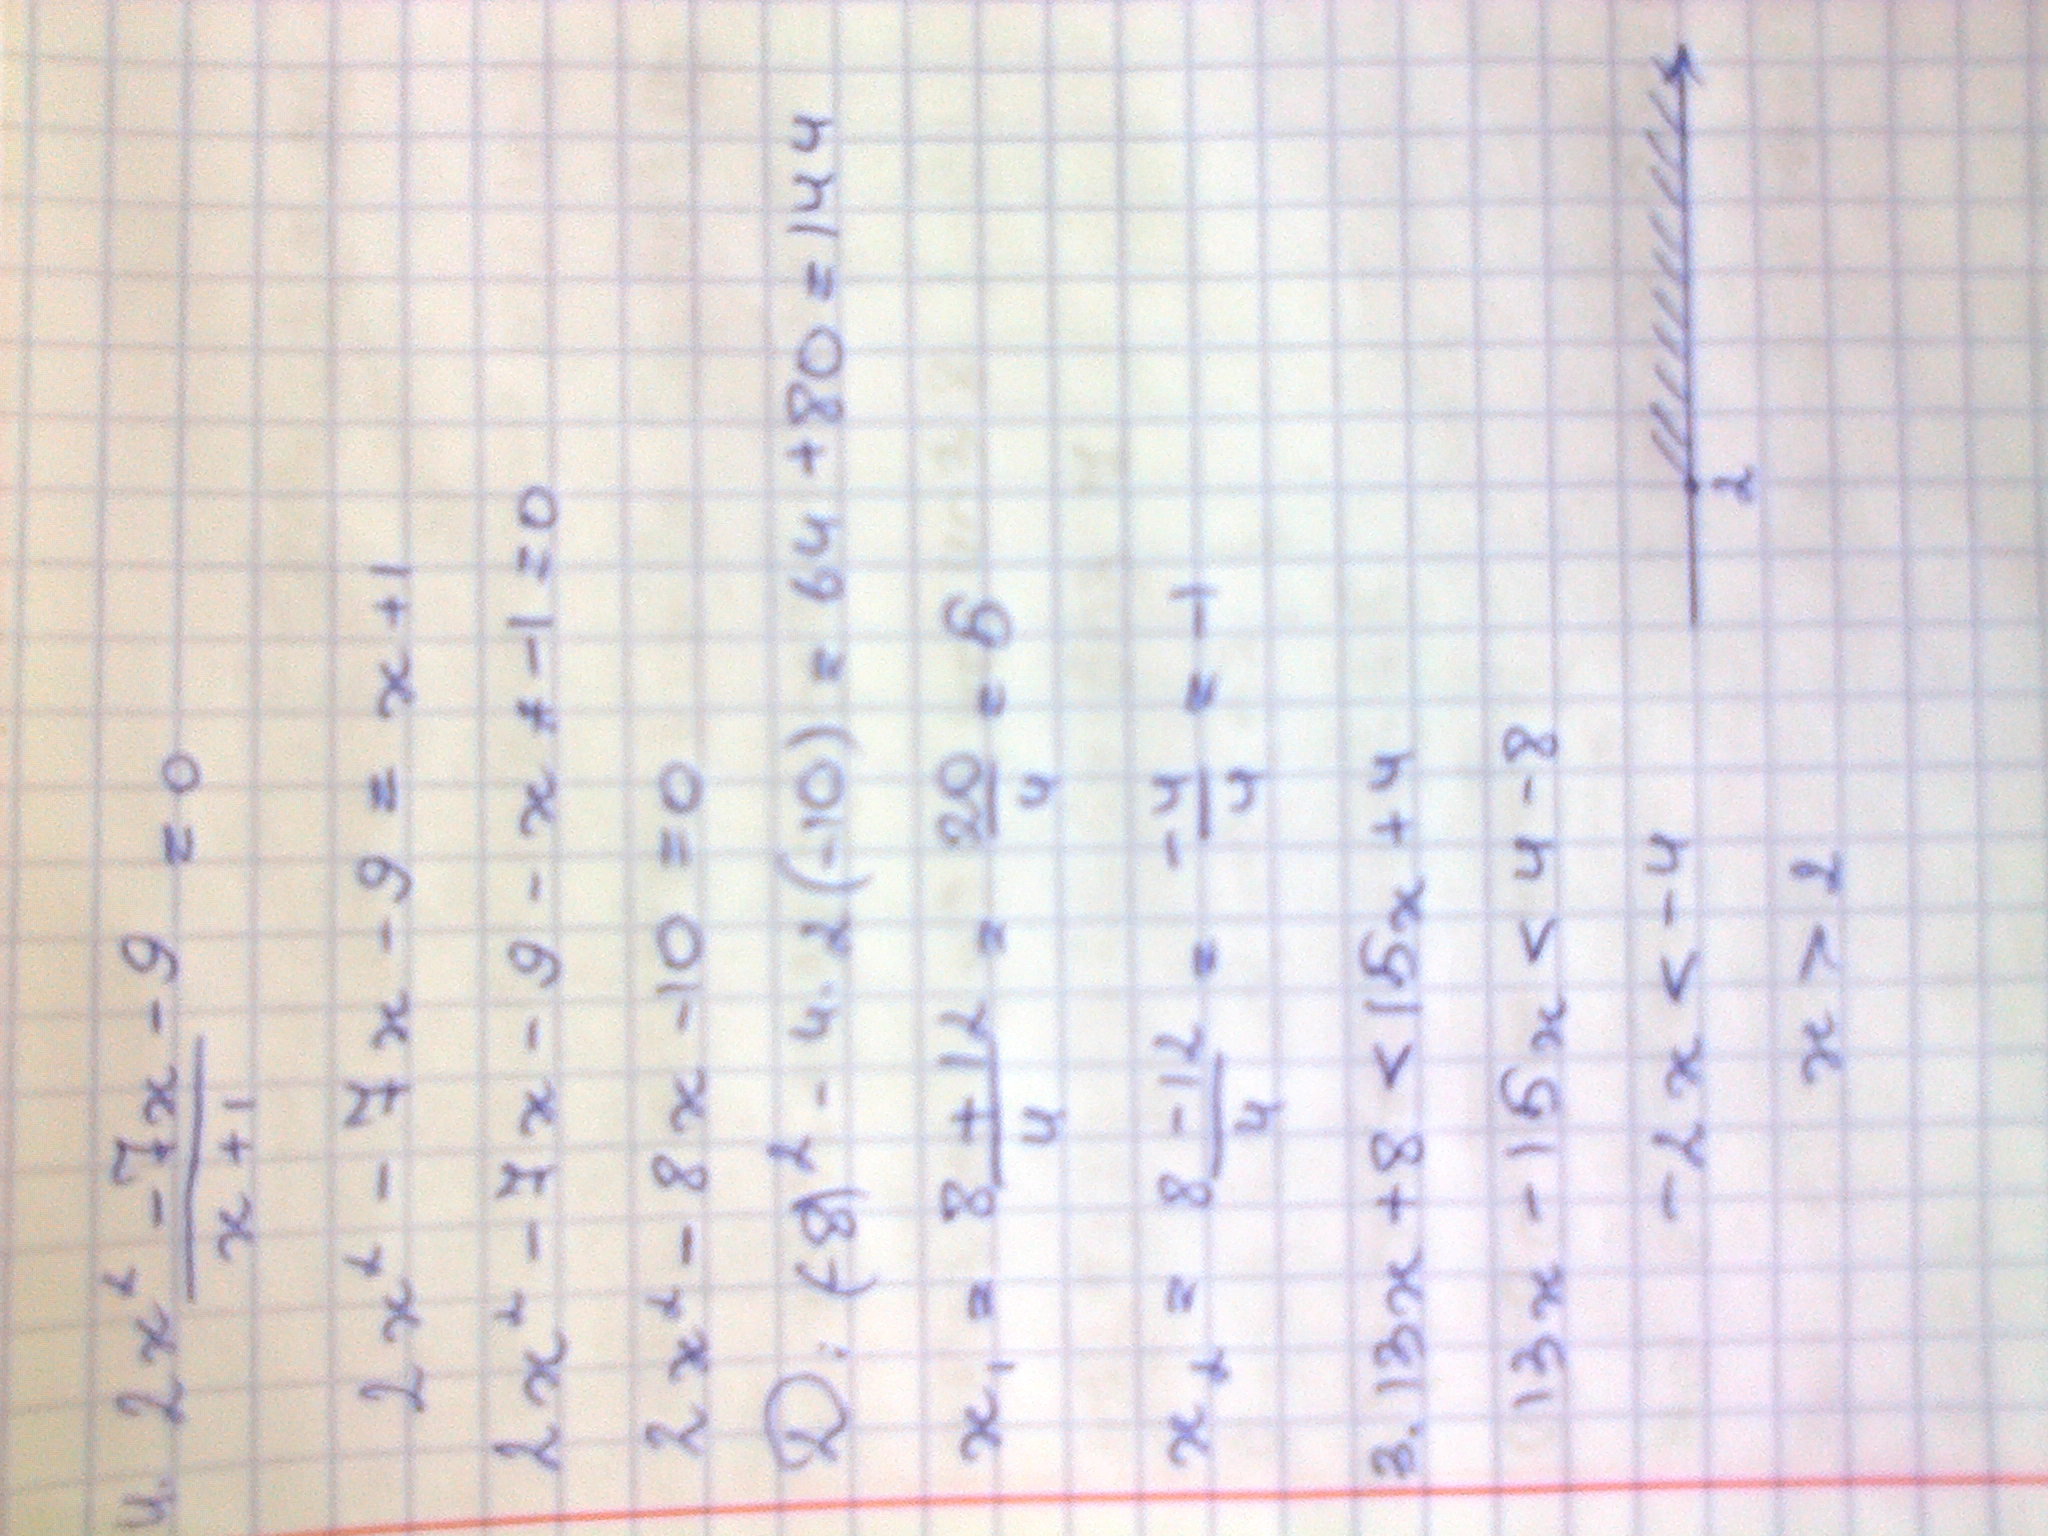 4. 2x² - 7x - 9 / x + 1 = 0
2x² - 7x - 9 = x + 1
2x² - 7x - 9 - x - 1 = 0
2x² - 8x - 10 = 0
D: (-8)² - 4 · 2(-10) = 64 + 80 = 144
x₁ = 8 + 12 / 4 = 20 / 4 = 5
x₂ = 8 - 12 / 4 = -4 / 4 = -1
3. 13x + 8 < 15x + 4
13x - 15x < 4 - 8
-2x < -4
x > 2
2